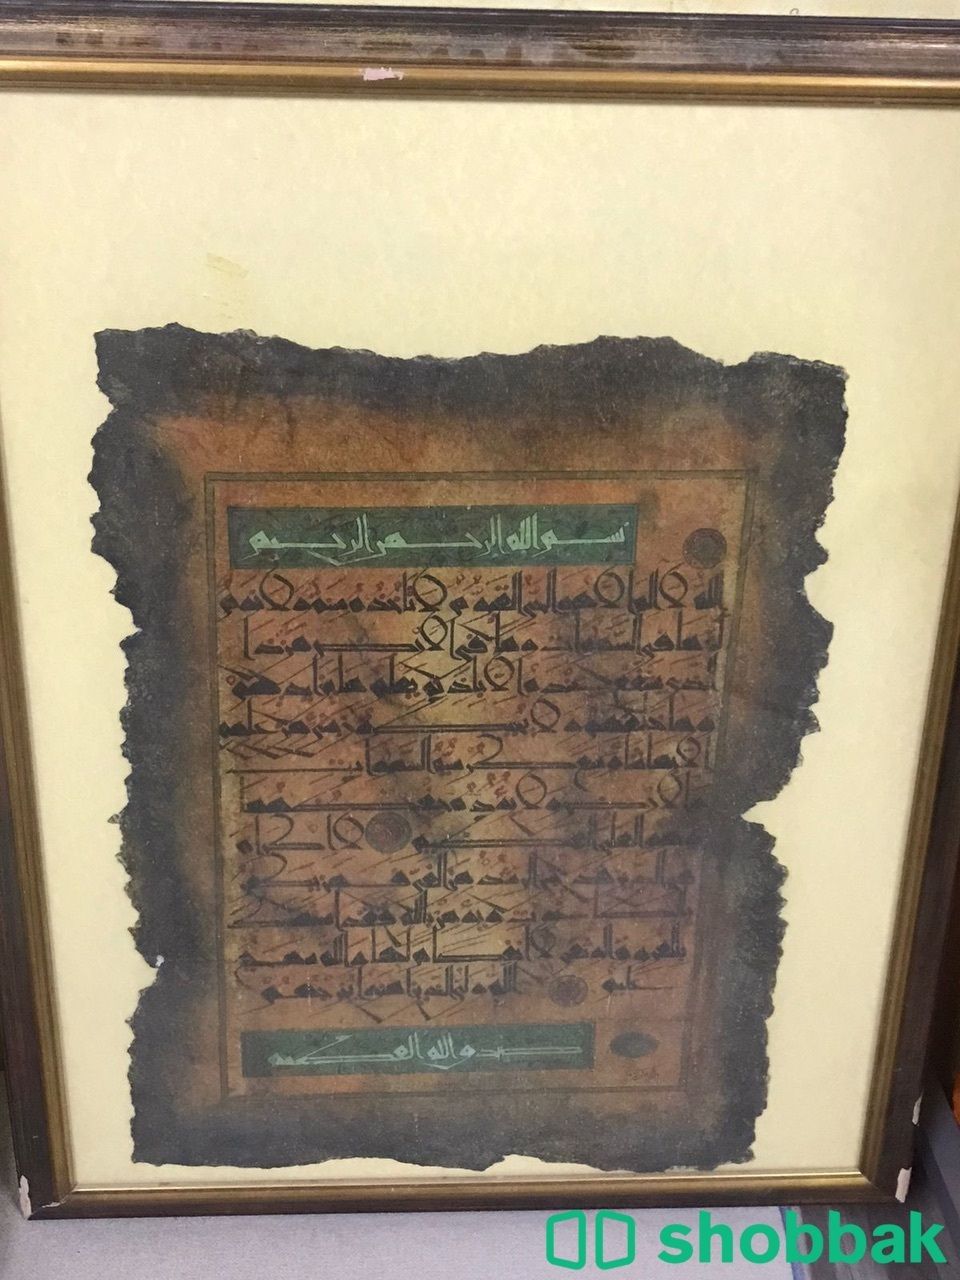 بسم الله الرحمن الرحيم
الله لا اله الا هو الحي القيوم لا تأخذه سنة ولا نوم
له ما في السموات وما في الارض من ذا
الذي يشفع عنده الا باذنه يعلم ما بين ايديهم
وما خلفهم ولا يحيطون بشيء من علمه
الا بما شاء وسع كرسيه السموات
والارض ولا يؤده حفظهما
وهو العلي العظيم لا اكراه
في الدين قد تبين الرشد من الغي فمن يكفر
بالطاغوت ويؤمن بالله فقد استمسك
لا انفصام لها والله سميع
عليم الله ولي الذين امنوا يخرجهم
صدق الله العظيم
shobbak